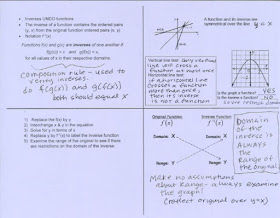 • Inverses UNDO functions
• The inverse of a function contains the ordered pairs
(y, x) from the original function ordered pairs (x, y)
• Notation f⁻¹(x)
Functions f(x) and g(x) are inverses of one another if
f(g(x)) = x and g(f(x)) = x
for all values of x in their respective domains.
composition rule - used to
verify inverses.
do f(g(x)) and g(f(x))
both should equal x
1) Replace the f(x) by y
2) Interchange x & y in the equation
3) Solve for y in terms of x
4) Replace y by f⁻¹(x) to label the inverse function
5) Examine the range of the original to see if there
are restrictions on the domain of the inverse
A function and its inverse are
symmetrical over the line y = x
Vertical line test:
line will cross a
function at most once
Horizontal line test:
if a horizontal line
crosses a function
more than once,
then its inverse
is not a function
Is the graph a function? YES
Is the inverse a function? NO
Original Function
f(x)
Inverse Function
f⁻¹(x)
Domain: X
Domain: X
Range: Y
Range: Y
Domain
of the
inverse is
always
the
range of
the original
Make no assumptions
about Range - always examine
the graph!
(reflect original over y=x)